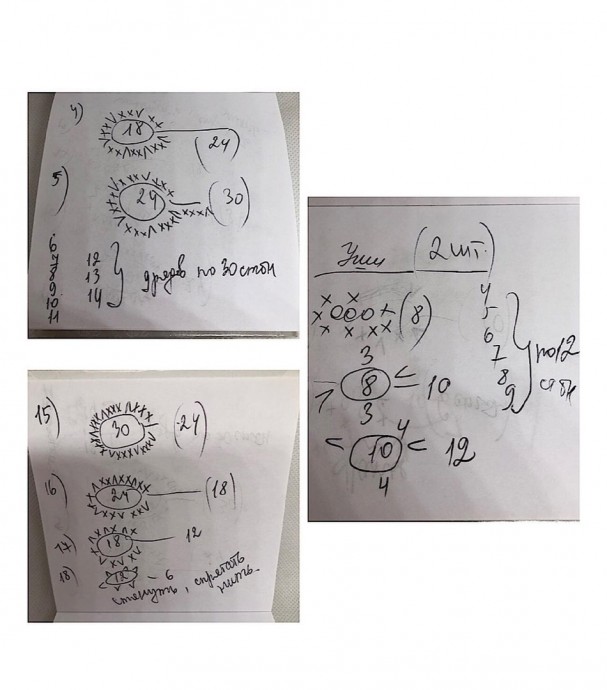 4)
18
(24)
5)
24
(30)
6
7
8
9
10
11
12
13
14
рядов по 30 стон
15)
30
(24)
16)
24
(18)
17)
18
12
18)
12 - 6
стянуть, спрятать
нить.
Уши (2 шт.
xooox (8)
3
8 10
3
10 12
4
4
4
5
6
7
8
9
по 12
сбн